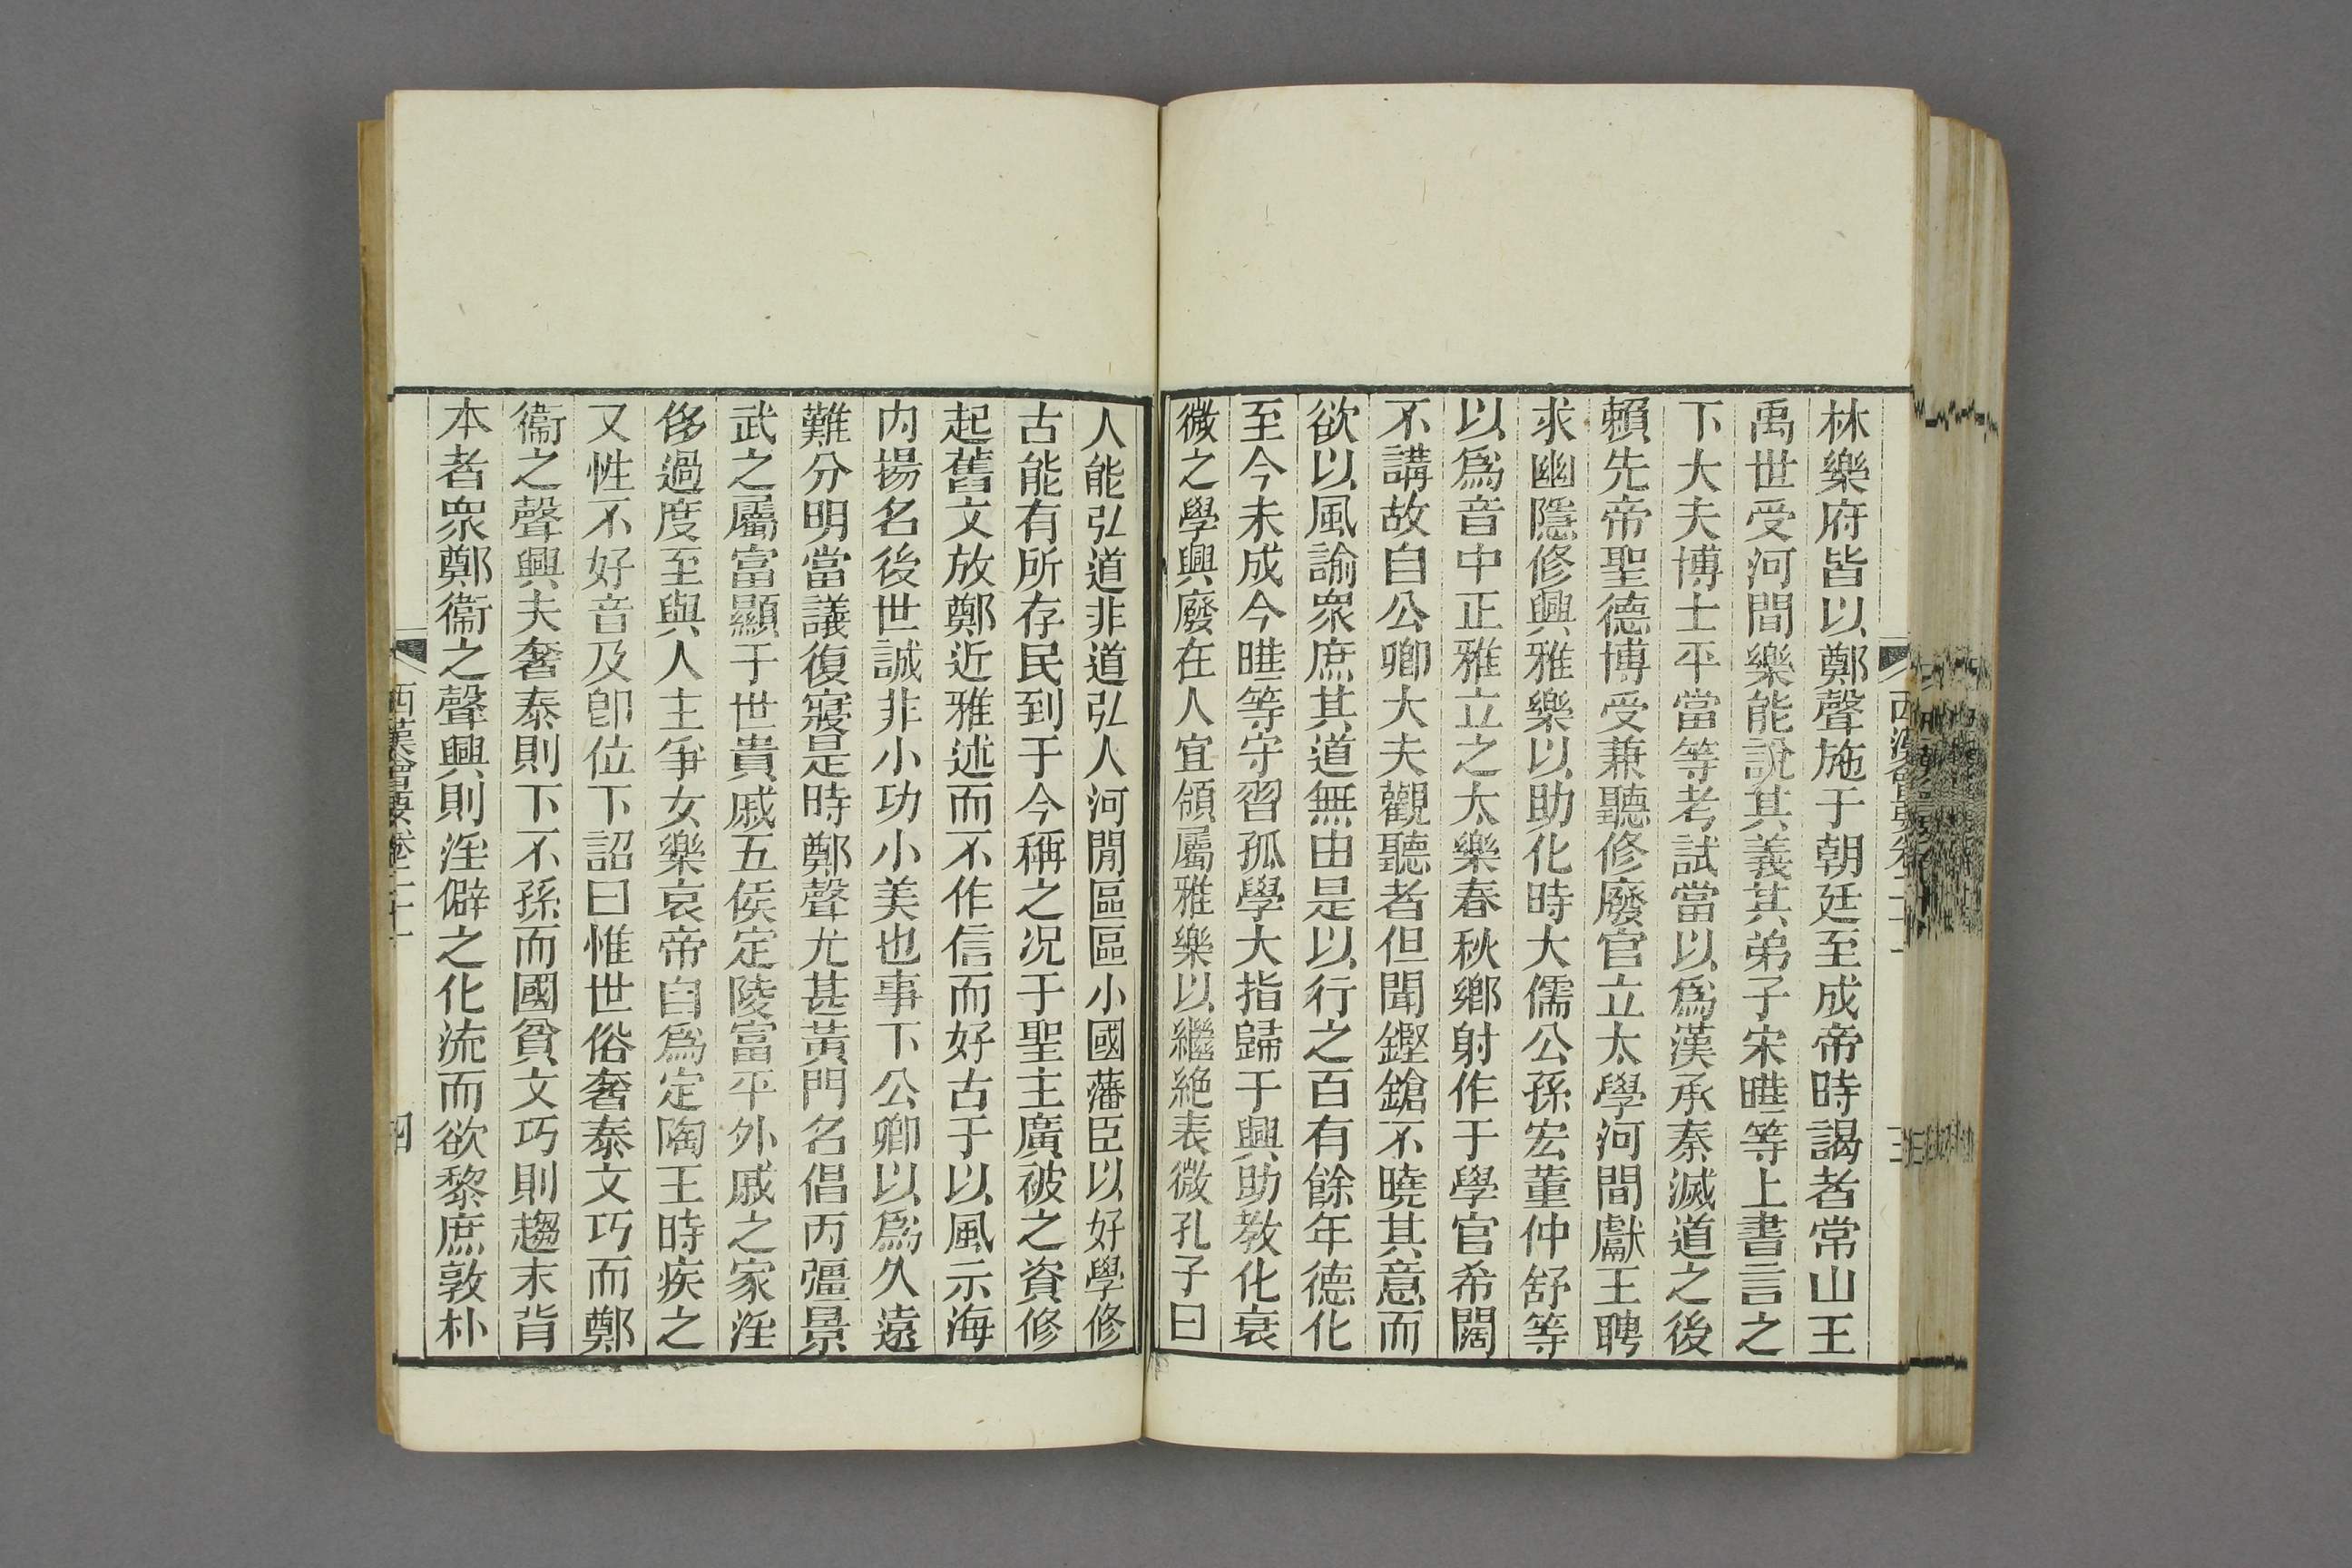 林樂府皆以鄭聲施于朝廷至成帝時謁者常山王
禹世受河間樂能說其義其弟子宋㬢等上書言之
下大夫博士平當等考試當以爲漢承秦滅道之後
賴先帝聖德博受兼聽修廢官立太學河間獻王聘
求幽隱修興雅樂以助化時大儒公孫宏董仲舒等
以爲音中正雅立之太樂春秋鄉射作于學官希闊
不講故自公卿大夫觀聽者但聞鏗鎗不曉其意而
欲以風諭衆庶其道無由是以行之百有餘年德化
至今未成今㬢等守習孤學大指歸于興助教化衰
微之學興廢在人宜領屬雅樂以繼絶表微孔子曰
人能弘道非道弘人河閒區區小國藩臣以好學修
古能有所存民到于今稱之况于聖主廣被之資修
起舊文放鄭近雅述而不作信而好古于以風示海
内揚名後世誠非小功小美也事下公卿以爲久遠
難分明當議復寢是時鄭聲尤甚黃門名倡丙彊景
武之屬富顯于世貴戚五侯定陵富平外戚之家淫
侈過度至與人主爭女樂哀帝自爲定陶王時疾之
又性不好音及卽位下詔曰惟世俗奢泰文巧而鄭
衞之聲興夫奢泰則下不孫而國貧文巧則趨末背
本者衆鄭衞之聲興則淫僻之化流而欲黎庶敦朴
西漢會要卷二十一
四